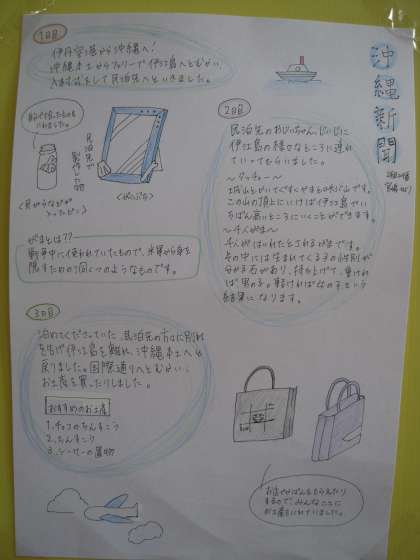 沖縄新聞
1日目
伊丹空港から沖縄へ!
沖縄本土からフェリーで伊江島へとむかい、
入村式をして民泊先へといきました。
民泊先で
製作した物
2日目
民泊先のおじいちゃん、じいじに
伊江島の様々なところに連れ
ていってもらいました。
〜タッチュー〜
城山とかいてぐすくやまと呼ぶ山です。
この山の頂上にいけば伊江島でい
ちばん高いところにいくことができます。
〜千人ガマ〜
千人がはいれたとされるガマです。
その中には生まれてくる子の性別が
分かる石があり、持ち上げて、重けれ
ば男の子。軽ければ女の子という
結果になります。
がまとは??
戦争中に使われていたもので、米軍から身を
隠すための洞くつのようなものです。
3日目
泊めてくださっていた、民泊先の方々に別れ
を告げ伊江島を離れ、沖縄本土へと
戻りました。国際通りへとむかい
お土産を買ったりしました。
おすすめのお土産
1.チョコちんすこう
2.ちんすこう
3.シーサーの置物